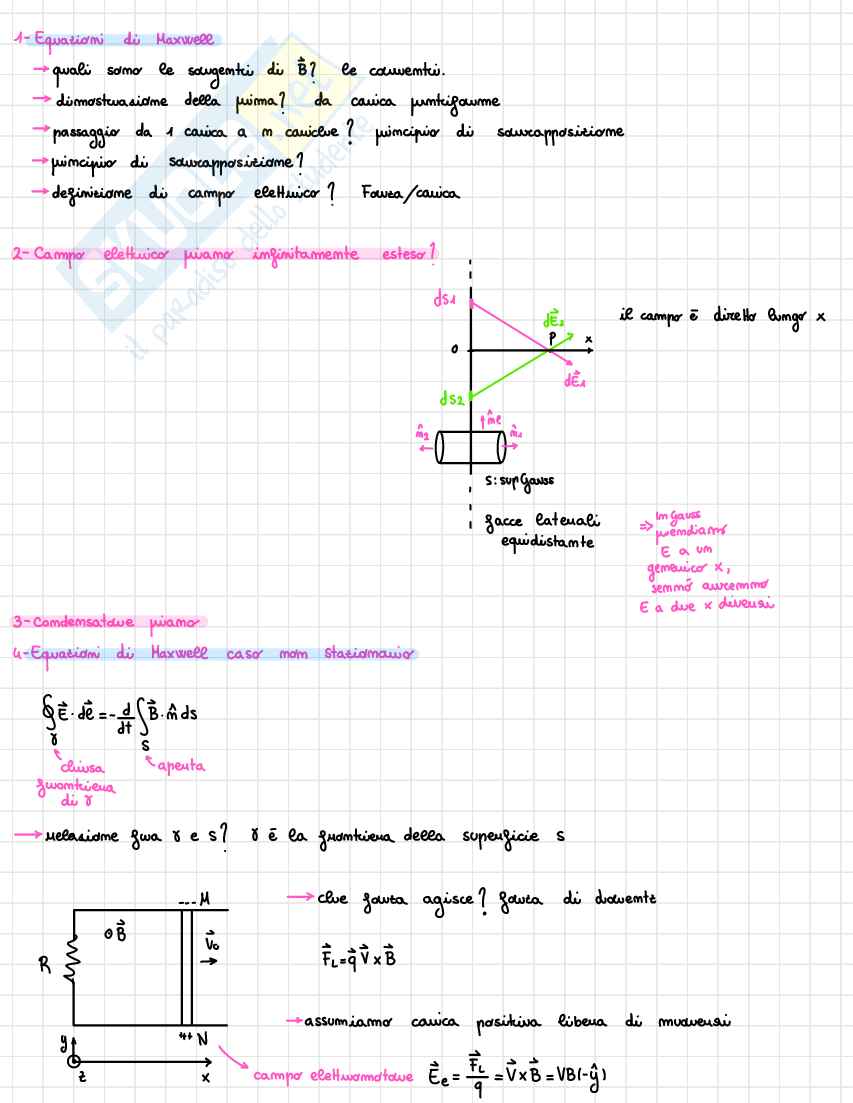 1-Equazioni di Maxwell
→ quali sono le sorgenti di B⃗? le correnti.
→ dimostrazione della prima? da carica puntiforme
→ passaggio da 1 carica a n cariche? principio di sovrapposizione
→ principio di sovrapposizione?
→ definizione di campo elettrico? Forza/carica
SKUOLA.net
il paradiso dello studente
2-Campo elettrico piano infinitamente esteso?
ds1
il campo è diretto lungo x
dE⃗2
P
x
O
dE⃗1
ds2
n̂2
n̂e
n̂1
S: sup Gauss
facce laterali
equidistante
⇒ In Gauss
prendiamo
E a un
generico x,
sennò avremmo
E a due x diversi
3-Condensatore piano
4-Equazioni di Maxwell caso non stazionario
∮γ E⃗·dℓ⃗ = -d/dt ∫S B⃗·n̂ ds
chiusa
frontiera
di γ
aperta
→ relazione fra γ e s? γ è la frontiera della superficie s
--- M
→ che forza agisce? forza di lorentz
⊙ B⃗
V⃗0
R
F⃗L = q⃗ V⃗ x B⃗
→ assumiamo carica positiva libera di muoversi
++ N
y
z
x
campo elettromotore E⃗e = F⃗L/q = V⃗ x B⃗ = VB(-ŷ)